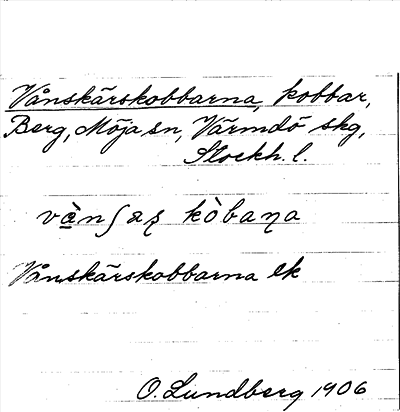 Vånskärskobbarna, kobbar,
Berg, Möja sn, Värmdö skg,
Stockh. l.
kòbaɳa
Vånskärskobbarna ek
O. Lundberg 1906